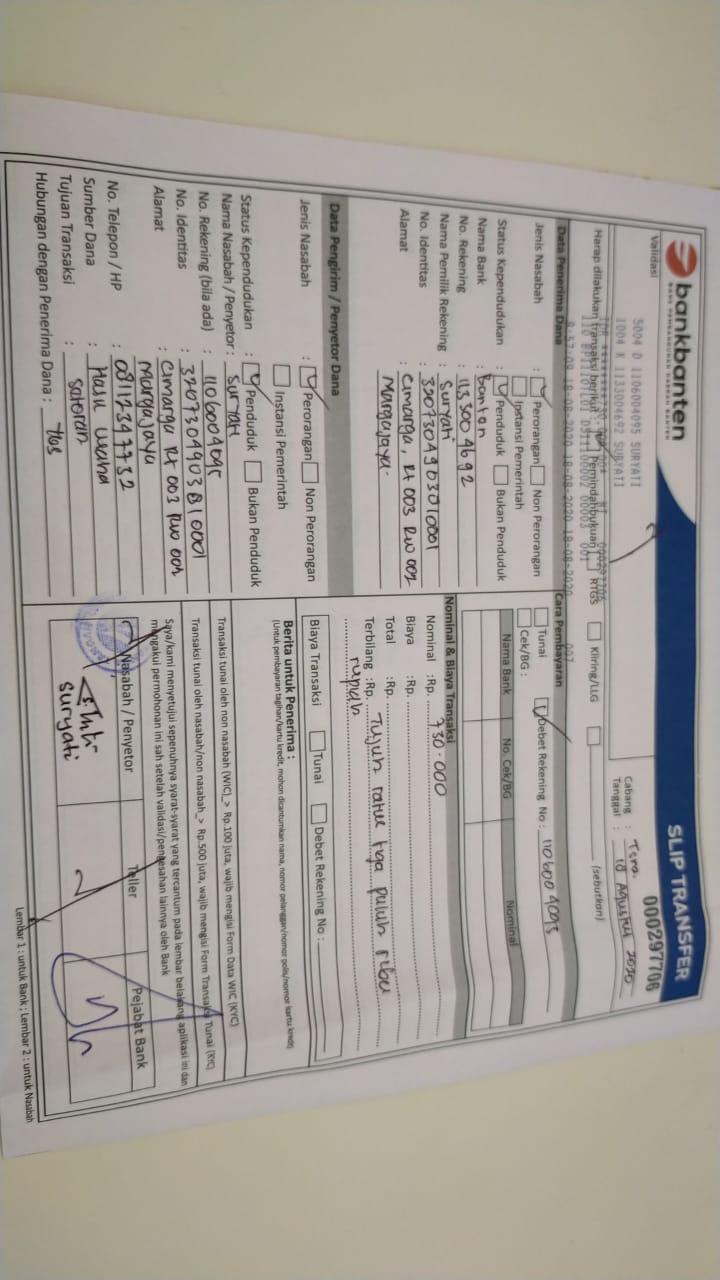 bankbanten
BANK PEMBANGUNAN DAERAH BANTEN
SLIP TRANSFER
000297706
Validasi
5004 D 1106004095 SURYATI
1004 K 1133004692 SURYATI
Cabang :
Tanggal : 18 Agustus 2020
Harap dilakukan transaksi berikut : Pemindahbukuan RTGS Kliring/LLG (sebutkan)
18-08-2020 18-08-2020 18-08-2020
Data Penerima Dana
Jenis Nasabah : Perorangan Non Perorangan
Instansi Pemerintah
Status Kependudukan : Penduduk Bukan Penduduk
Nama Bank : Banten
No. Rekening : 1133004692
Nama Pemilik Rekening : Suryati
No. Identitas :
Alamat : Cimarga, Rt 003 Rw 001
Margajaya.
Cara Pembayaran
Tunai Debet Rekening No : 1106004095
Cek/BG :
Nama Bank No. Cek/BG Nominal
Nominal & Biaya Transaksi
Nominal :Rp. 730.000
Biaya :Rp.
Total :Rp.
Terbilang :Rp. Tujuh ratus tiga puluh ribu
rupiah
Data Pengirim / Penyetor Dana
Jenis Nasabah : Perorangan Non Perorangan
Instansi Pemerintah
Status Kependudukan : Penduduk Bukan Penduduk
Nama Nasabah / Penyetor : Suryati
No. Rekening (bila ada) : 1106004095
No. Identitas :
Alamat : Cimarga Rt 003 Rw 001
Margajaya
No. Telepon / HP :
Sumber Dana : Hasil usaha
Tujuan Transaksi : setoran
Hubungan dengan Penerima Dana :
Biaya Transaksi Tunai Debet Rekening No :
Berita untuk Penerima :
(Untuk pembayaran tagihan/kartu kredit, mohon dicantumkan nama, nomor pelanggan/nomor polis/nomor kartu kredit)
Transaksi tunai oleh non nasabah (WIC)_> Rp.100 juta, wajib mengisi Form Data WIC (KYC)
Transaksi tunai oleh nasabah/non nasabah_> Rp.500 juta, wajib mengisi Form Transaksi Tunai (KYC)
Saya/kami menyetujui sepenuhnya syarat-syarat yang tercantum pada lembar belakang aplikasi ini dan
mengakui permohonan ini sah setelah validasi/pengesahan lainnya oleh Bank
Nasabah / Penyetor Teller Pejabat Bank
Suryati
Lembar 1 : untuk Bank ; Lembar 2 : untuk Nasabah